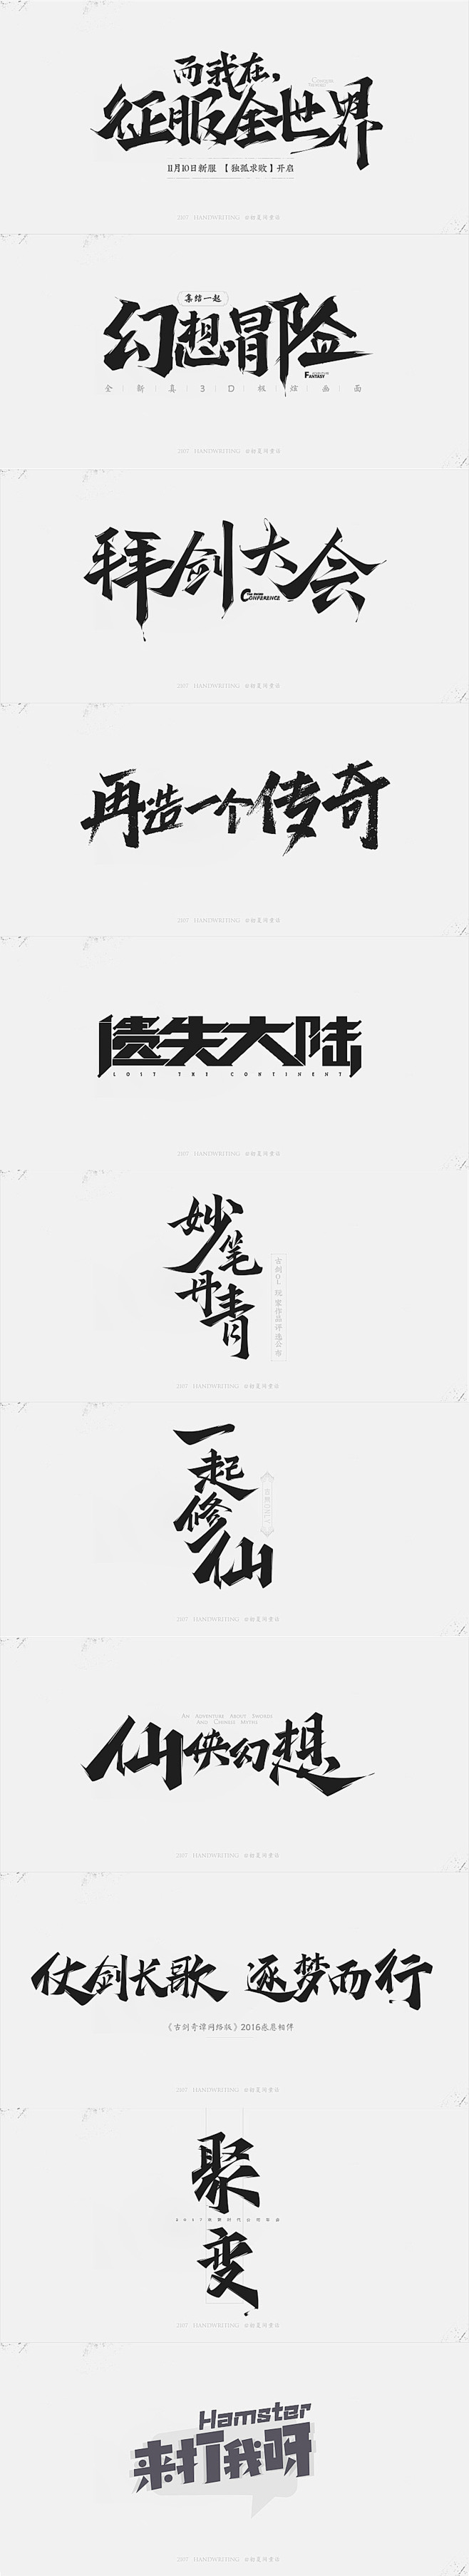 而我在，
征服全世界
11月10日新服 【独孤求败】开启
2017 HANDWRITING
集结一起
幻想冒险
FANTASY
全 新 真 3 D 极 炫 画 面
2017 HANDWRITING
拜剑大会
CONFERENCE
2017 HANDWRITING
再造一个传奇
2017 HANDWRITING
遗失大陆
LOST THE CONTINENT
2017 HANDWRITING
妙笔丹青
古剑OL 玩家作品评选公布
2017 HANDWRITING
一起修仙
2017 HANDWRITING
AN ADVENTURE ABOUT SWORDS
AND CHINESE MYTHS
仙侠幻想
2017 HANDWRITING
仗剑长歌 逐梦而行
《古剑奇谭网络版》2016感恩相伴
2017 HANDWRITING
聚变
2017 HANDWRITING
Hamster
来打我呀
2017 HANDWRITING